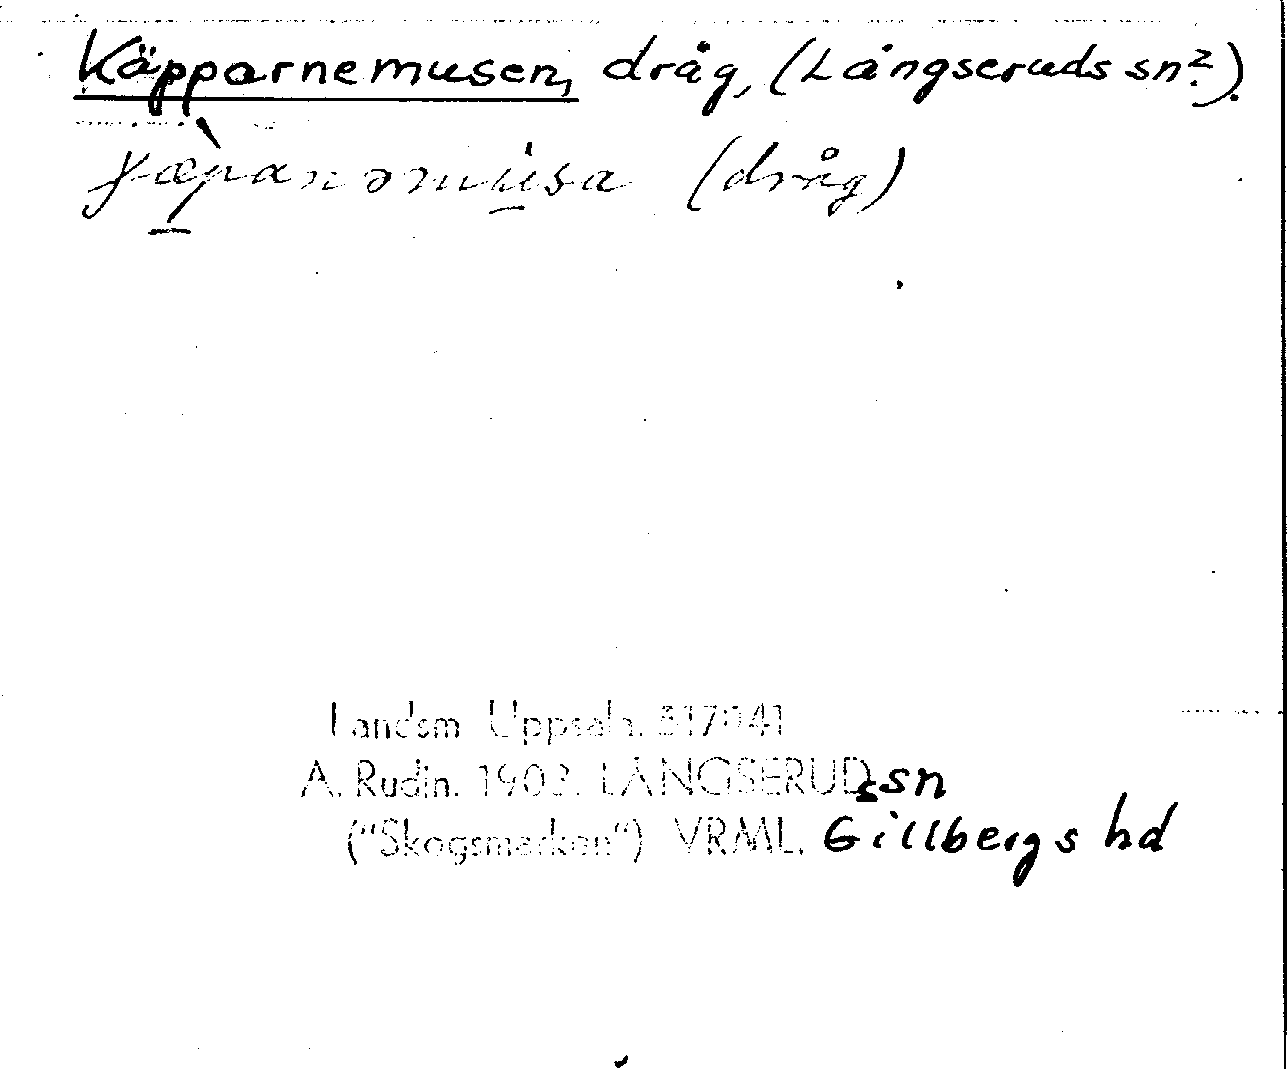 Käpparnemusen, dråg, (Långseruds sn?).
(dråg)
Landsm. Uppsala. 517:41
A. Rudin. 1903. LÅNGSERUDs sn
("Skogsmarken") VRML. Gillbergs hd